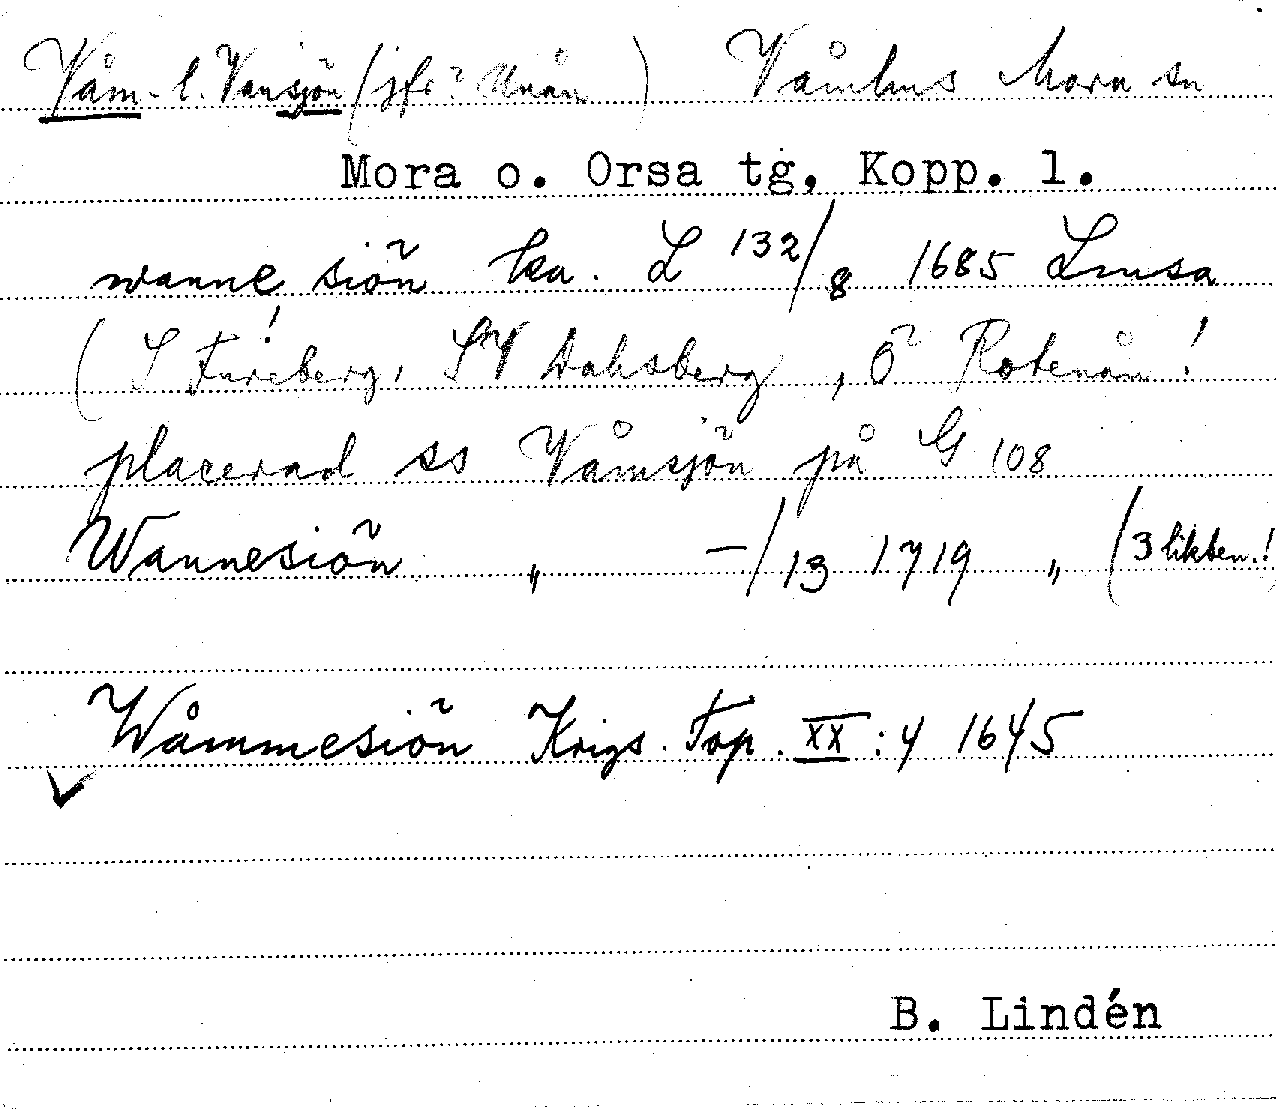 Våm- l. Vansjön (jfr? Unån) Våmhus Mora sn
Mora o. Orsa tg, Kopp. l.
wanne siön ka. L 132/8 1685 Lmsa
(S Fureberg, SV Dahsberg, Ö Rotenån!
placerad ss Våmsjön på G 108
Wannesiön „ –/13 1719 „ (3 likben.!
Wåmmesiön Krigs. Top. XX:4 1645
B. Lindén